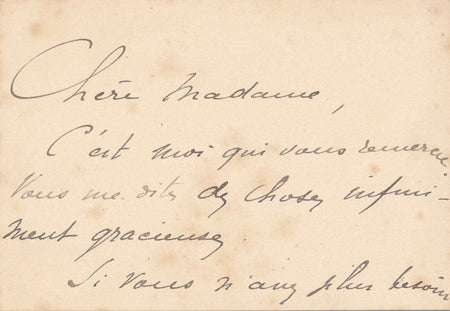 Chère Madame,
C'est moi qui vous remercie
Vous me dites des choses infini-
ment gracieuses.
Si vous n'avez plus besoin